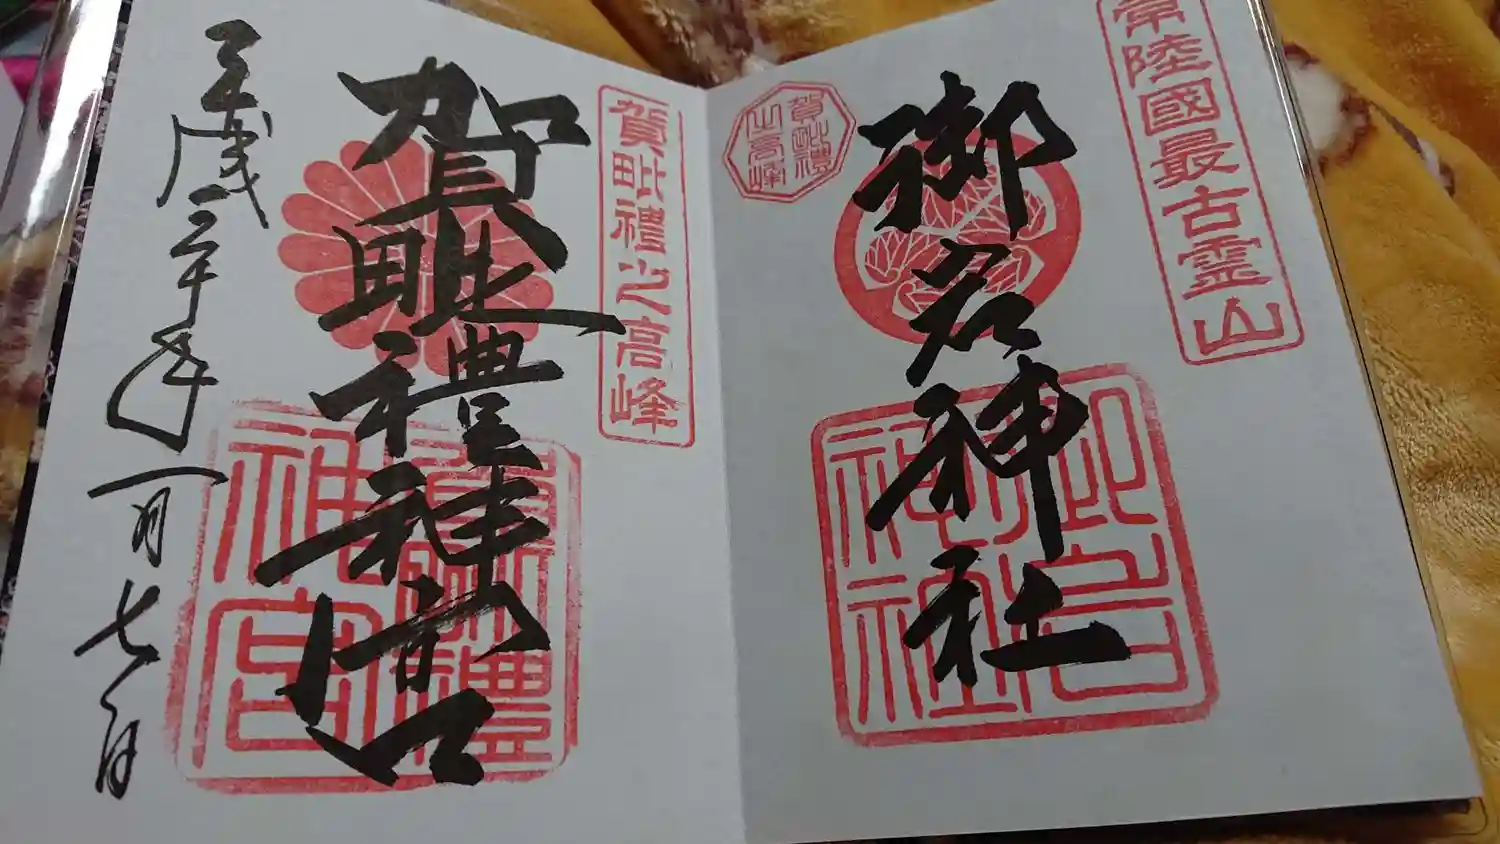 常陸國最古霊山
御岩神社
御岩神社
賀毗禮之高峰
賀毗禮之高峰
賀毗禮神宮
賀毗禮神宮
平成三十年一月七日